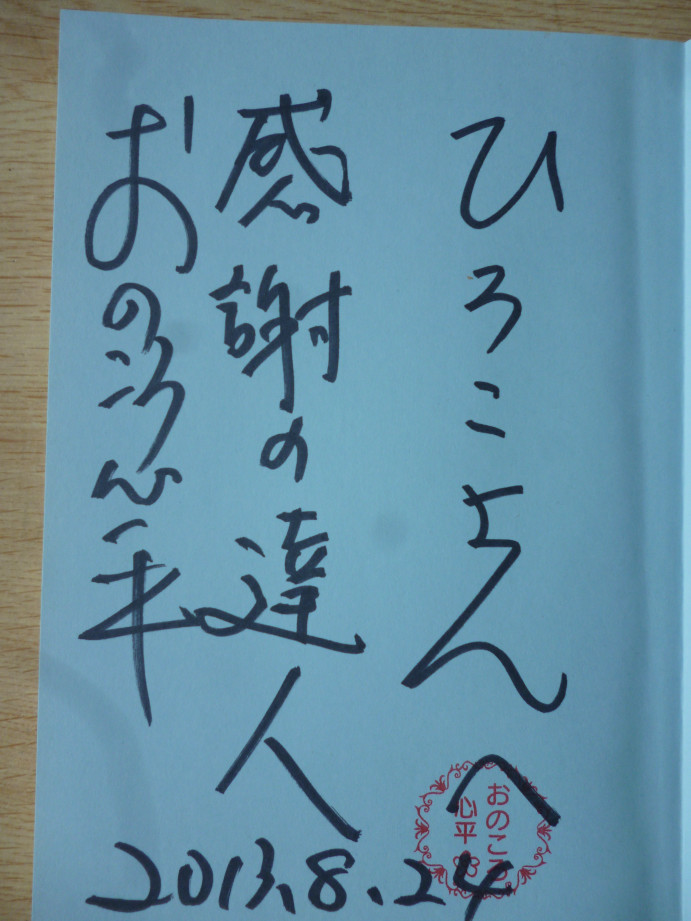 ひろこさんへ
感謝の達人
おのころ心平
2013.8.24
おのころ
心平